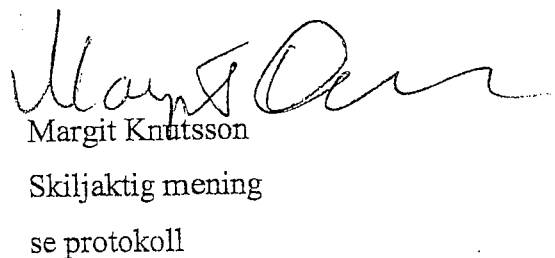 Margit Knutsson
Skiljaktig mening
se protokoll